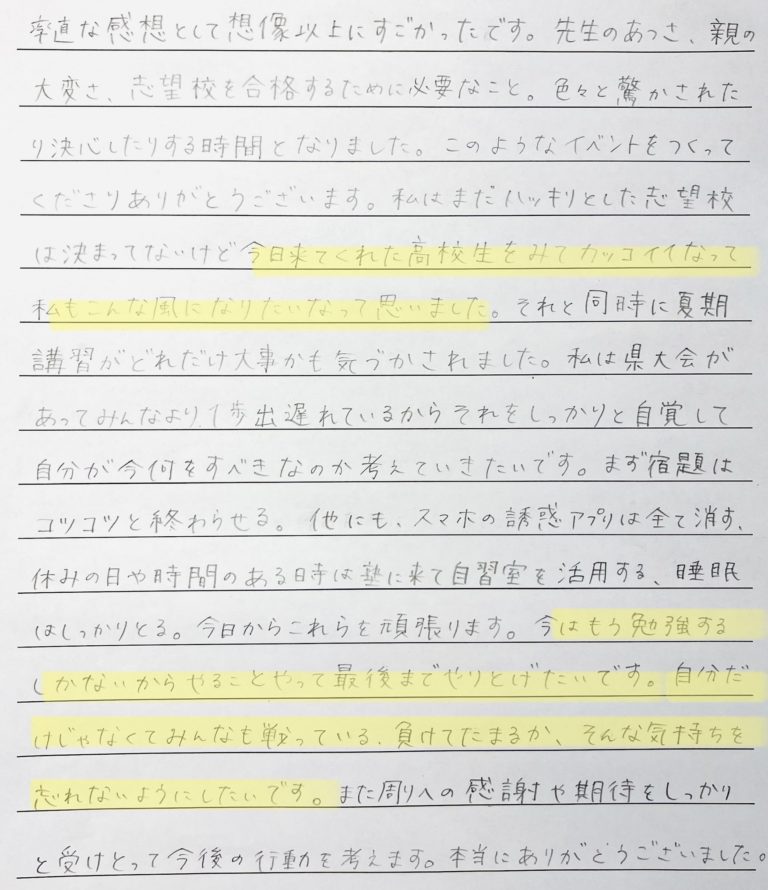 率直な感想として想像以上にすごかったです。先生のあつさ、親の
大変さ、志望校を合格するために必要なこと。色々と驚かされた
り決心したりする時間となりました。このようなイベントをつくって
くださりありがとうございます。私はまだハッキリとした志望校
は決まってないけど今日来てくれた高校生をみてカッコイイなって
私もこんな風になりたいなって思いました。それと同時に夏期
講習がどれだけ大事かも気づかされました。私は県大会が
あってみんなより1歩出遅れているからそれをしっかりと自覚して
自分が今何をすべきなのか考えていきたいです。まず宿題は
コツコツと終わらせる。他にも、スマホの誘惑アプリは全て消す、
休みの日や時間のある時は塾に来て自習室を活用する、睡眠
はしっかりとる。今日からこれらを頑張ります。今はもう勉強する
しかないからやることやって最後までやりとげたいです。自分だ
けじゃなくてみんなも戦っている、負けてたまるか、そんな気持ちを
忘れないようにしたいです。また周りへの感謝や期待をしっかり
と受けとって今後の行動を考えます。本当にありがとうございました。